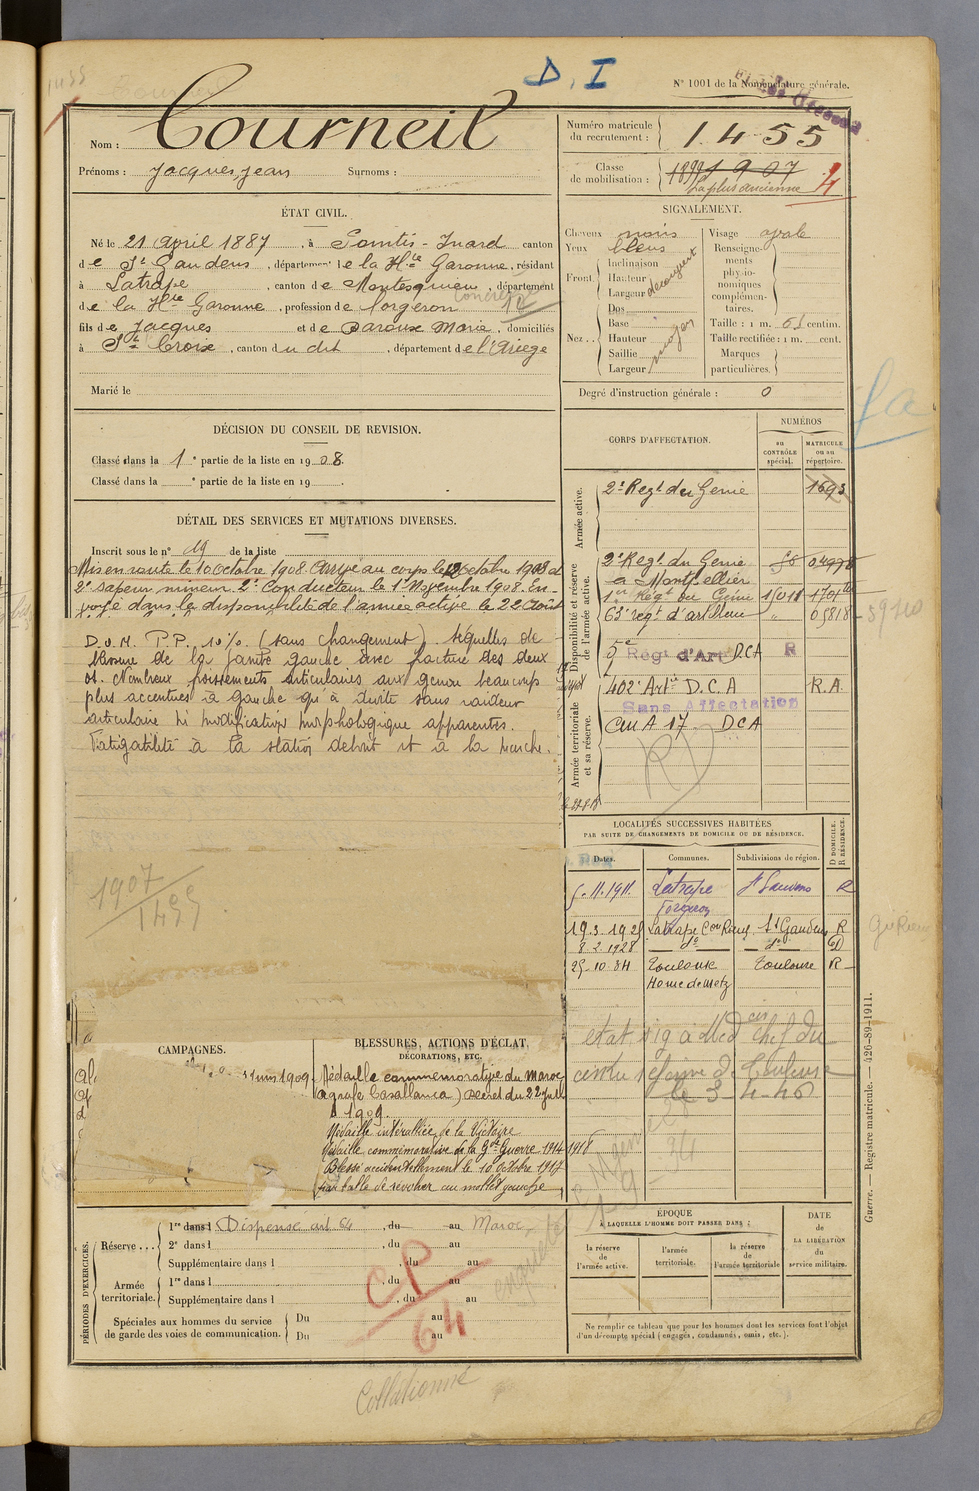 D, I
N° 1001 de la Nomenclature générale.
Nom : Courneil
Prénoms : Jacques Jean Surnoms :
Numéro matricule du recrutement : 1455
Classe de mobilisation : 1907
La plus ancienne
4
ÉTAT CIVIL.
Né le 21 Avril 1887, à Pointis-Inard canton
de St Gaudens, département de la Hte Garonne, résidant
à Latrape, canton de Montesquieu, département
de la Hte Garonne, profession de forgeron
fils de Jacques et de Baroux Marie, domiciliés
à Ste Croix, canton du dit, département de l'Ariège
Marié le
SIGNALEMENT.
Cheveux noirs
Yeux bleus
Front
Inclinaison
Hauteur
Largeur
Nez
Dos
Base
Hauteur
Saillie
Largeur
moyen
Visage ovale
Renseignements physionomiques complémentaires.
Taille : 1 m. 61 centim.
Taille rectifiée : 1 m. cent.
Marques particulières.
Degré d'instruction générale : 0
DÉCISION DU CONSEIL DE REVISION.
Classé dans la 1e partie de la liste en 1908.
Classé dans la e partie de la liste en 19 .
DÉTAIL DES SERVICES ET MUTATIONS DIVERSES.
Inscrit sous le n° 29 de la liste
Mis en route le 10 octobre 1908. Arrivé au corps le 12 octobre 1908 et
2e sapeur mineur. 2e Conducteur le 1er Novembre 1908. En-
voyé dans la disponibilité de l'armée active le 22 Août
D.U.M. P.P. 10% (sans changement). Séquelles de
blessure de la jambe gauche avec fracture des deux
os. Nombreux froissements articulaires aux genoux beaucoup
plus accentués à gauche qu'à droite sans raideur
articulaire ni modification morphologique apparentes.
Fatigabilité à la station debout et à la marche.
1907
1455
CORPS D'AFFECTATION.
NUMÉROS
au CONTRÔLE spécial.
MATRICULE ou au répertoire.
Armée active.
2e Regt du Génie 1693
Disponibilité et réserve de l'armée active.
2e Regt. du Génie
à Montpellier
1er Régt du Génie
63e regt d'artillerie " 05818
5e Régt d'Art DCA R
Armée territoriale et sa réserve.
402e Artie D.C.A R.A.
Sans Affectation
CMA 17 DCA
LOCALITÉS SUCCESSIVES HABITÉES
PAR SUITE DE CHANGEMENTS DE DOMICILE OU DE RÉSIDENCE.
Dates. Communes. Subdivisions de région. D DOMICILE. R RÉSIDENCE.
5.11.1911 Latrape St Gaudens R
forgeron
19.3.1925 Latrape Con Rieux St Gaudens R
8.2.1928 do do D
25-10-34 Toulouse Toulouse R
état sig à Méd cin chef du
centre réforme de Toulouse
le 3-4-40
CAMPAGNES.
BLESSURES, ACTIONS D'ÉCLAT,
DÉCORATIONS, ETC.
Médaille commémorative du Maroc
(agrafe Casablanca) décret du 22 juill
1909
Médaille interalliée de la Victoire
Médaille commémorative de la Gde Guerre 1914 1918
Blessé accidentellement le 10 Octobre 1917
par balle de revolver au mollet gauche
PÉRIODES D'EXERCICES.
Réserve . . .
1re dans l Dispensé art 64, du au Maroc
2e dans l , du au
Supplémentaire dans l , du au
Armée territoriale.
1re dans l , du au
Supplémentaire dans l , du au
Spéciales aux hommes du service de garde des voies de communication.
Du au
Du au
CP
64
ÉPOQUE
À LAQUELLE L'HOMME DOIT PASSER DANS :
la réserve de l'armée active.
l'armée territoriale.
la réserve de l'armée territoriale
DATE de LA LIBÉRATION du service militaire.
Ne remplir ce tableau que pour les hommes dont les services font l'objet
d'un décompte spécial (engagés, condamnés, omis, etc.).
Guerre. — Registre matricule. — 426-89-1911.
Collationné